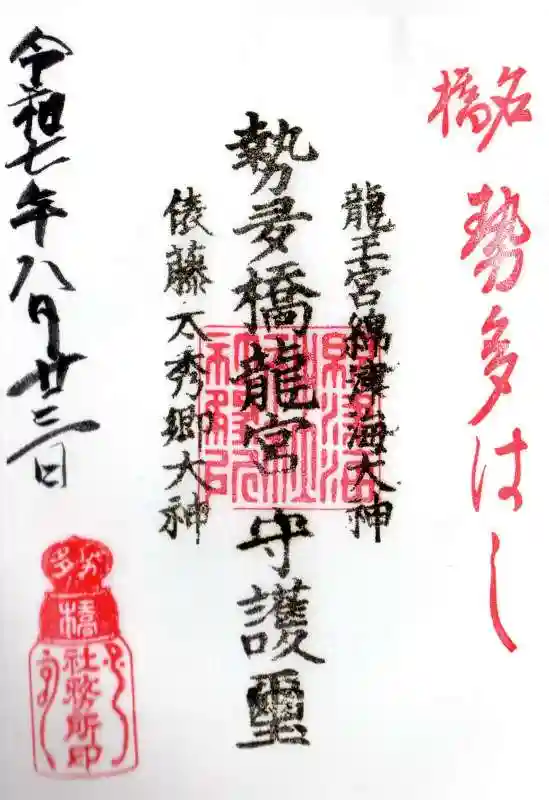 橋名
勢多はし
龍王宮綿津海大神
勢多橋龍宮守護璽
俵藤太秀郷大神
令和七年八月廿三日
勢多
橋
社務所印